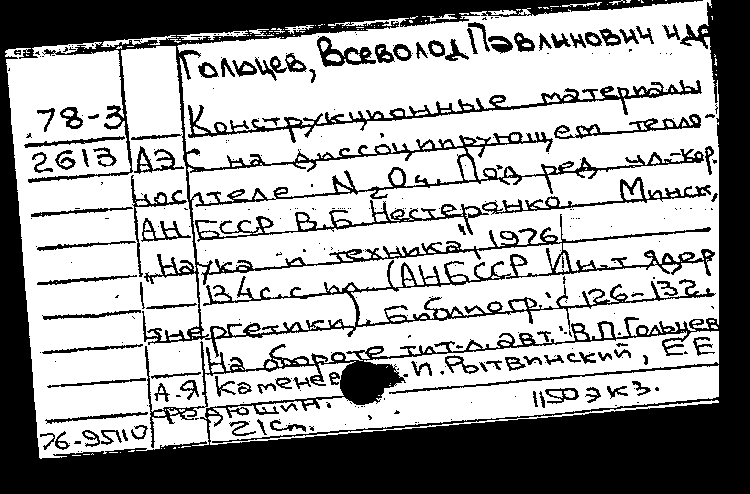 Гольцев, Всеволод Павлинович и др
78-3 Конструкционные материалы
2613 АЭС на диссоциирующем тепло-
носителе N2O4. Под ред. чл.-кор.
АН БССР В.Б. Нестеренко. Минск,
"Наука и техника", 1976
134с. с ил. (АН БССР. Ин-т ядер
энергетики). Библиогр.: с 126-132.
На обороте тит. л. авт.: В.П. Гольцев
А.Я Каменев И. Рытвинский, Е.Е
Федюшин. 1150 экз.
76-95110 21см.